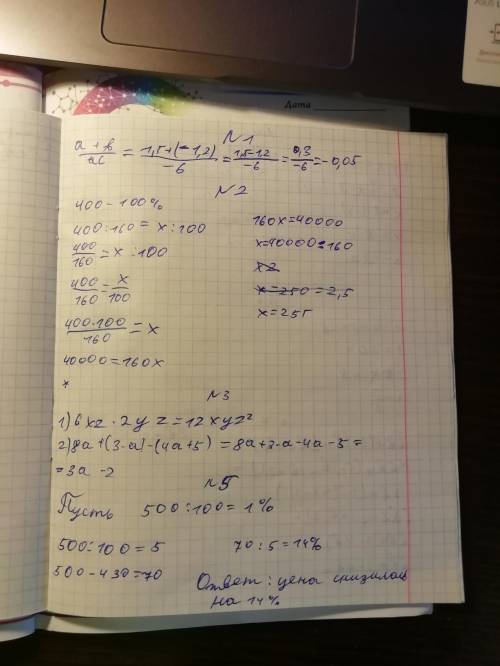 Дата
N1
a+b/ac = 1,5+(-1,2)/-6 = 1,5-1,2/-6 = 0,3/-6 = -0,05
N2
400-100%
400:160=x:100
400/160=x:100
400/160=x/100
400·100/160=x
40000=160x
x
160x=40000
x=40000:160
x2
x=250=2,5
x=25г
N3
1) 6xz·2yz=12xyz²
2) 8a+(3-a)-(4a+5)=8a+3-a-4a-5=
=3a-2
N5
Пусть 500:100=1%
500:100=5
70:5=14%
500-430=70
Ответ: цена снизилась
на 14%